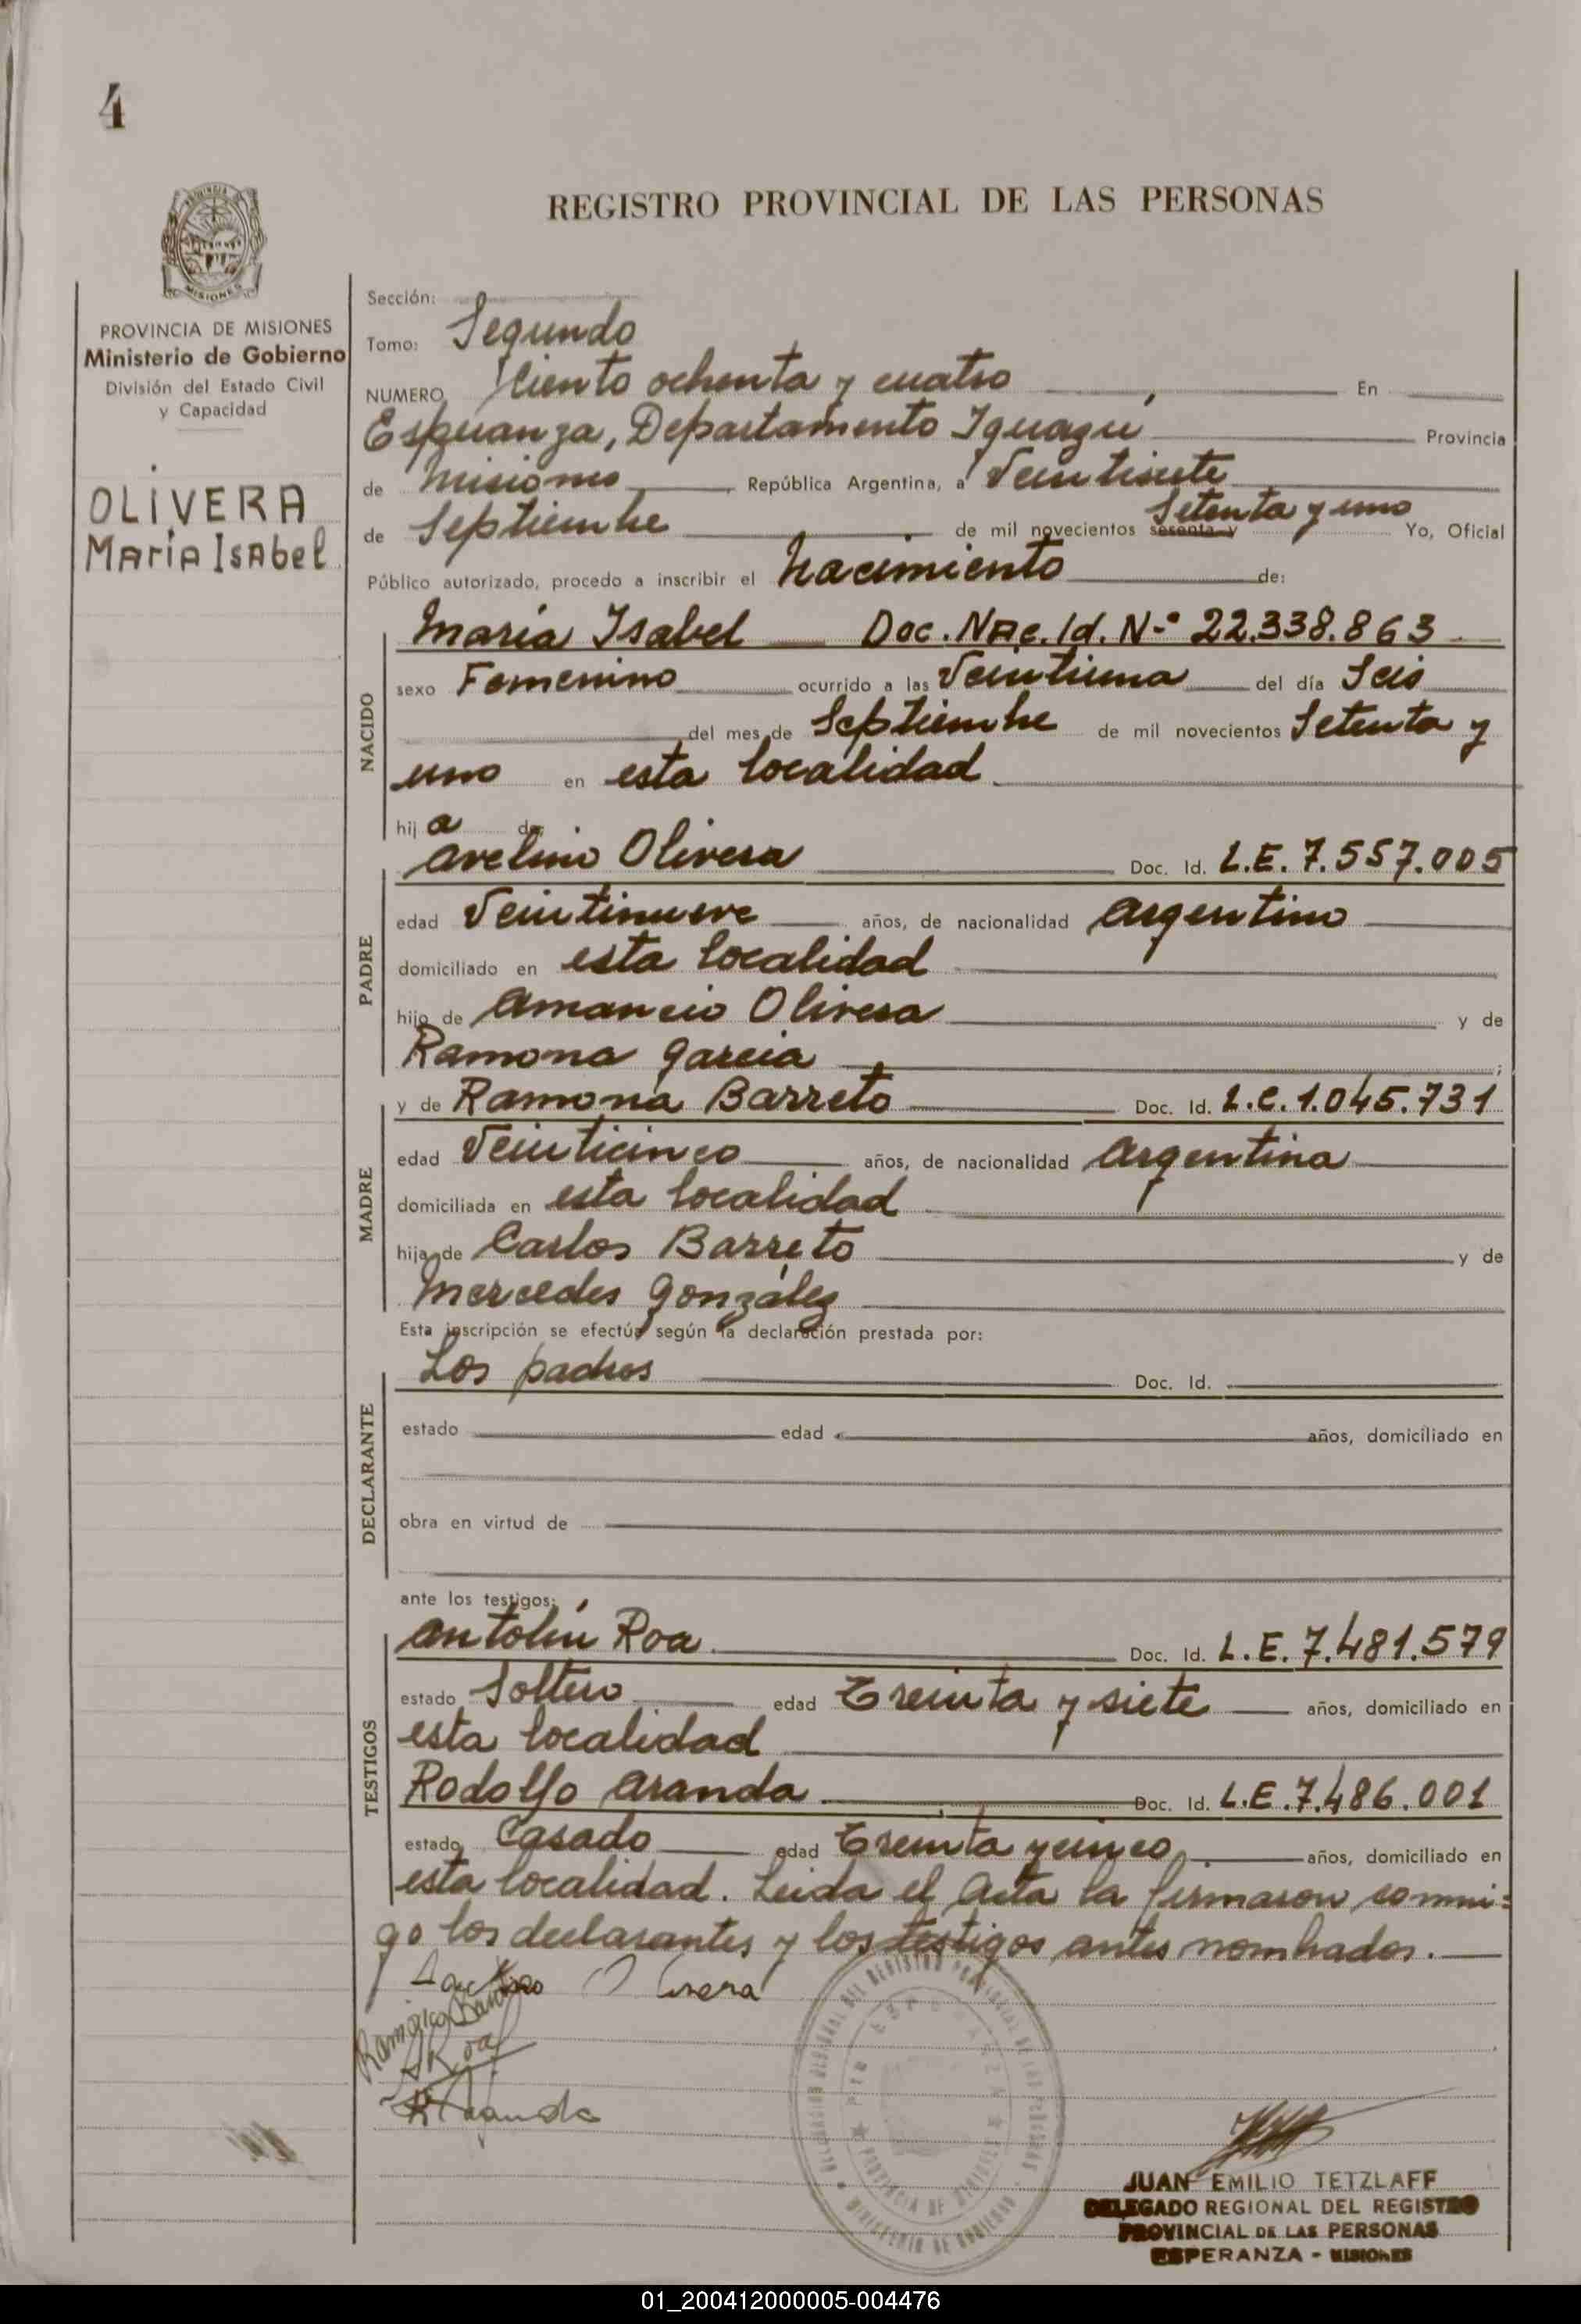 4
REGISTRO PROVINCIAL DE LAS PERSONAS
PROVINCIA DE MISIONES
Ministerio de Gobierno
División del Estado Civil
y Capacidad
OLIVERA
María Isabel
Sección:
Tomo: Segundo
NUMERO Ciento ochenta y cuatro En
Esperanza, Departamento Iguazú Provincia
de Misiones, República Argentina, a Veintisiete
de Septiembre de mil novecientos sesenta y Setenta y uno Yo, Oficial
Público autorizado, procedo a inscribir el Nacimiento de:
NACIDO
María Isabel Doc. Nac. Id. Nº 22.338.863
sexo Femenino ocurrido a las Veintiuna del día Seis
del mes de Septiembre de mil novecientos Setenta y
uno en esta localidad
hija de
PADRE
Avelino Olivera Doc. Id. L.E. 7.557.005
edad Veintinueve años, de nacionalidad Argentino
domiciliado en esta localidad
hijo de Amancio Olivera y de
Ramona Garcia;
MADRE
y de Ramona Barreto Doc. Id. L.C. 1.045.731
edad Veinticinco años, de nacionalidad Argentina
domiciliada en esta localidad
hija de Carlos Barreto y de
Mercedes González
Esta inscripción se efectúa según la declaración prestada por:
DECLARANTE
Los padres Doc. Id.
estado edad años, domiciliado en
obra en virtud de
ante los testigos:
TESTIGOS
Antolín Roa Doc. Id. L.E. 7.481.579
estado Soltero edad Treinta y siete años, domiciliado en
esta localidad
Rodolfo Aranda Doc. Id. L.E. 7.486.001
estado Casado edad Treinta y cinco años, domiciliado en
esta localidad. Leida el Acta la firmaron conmi=
go los declarantes y los testigos antes nombrados.
Olivera
Roa
JUAN EMILIO TETZLAFF
DELEGADO REGIONAL DEL REGISTRO
PROVINCIAL DE LAS PERSONAS
ESPERANZA - MISIONES
01_200412000005-004476